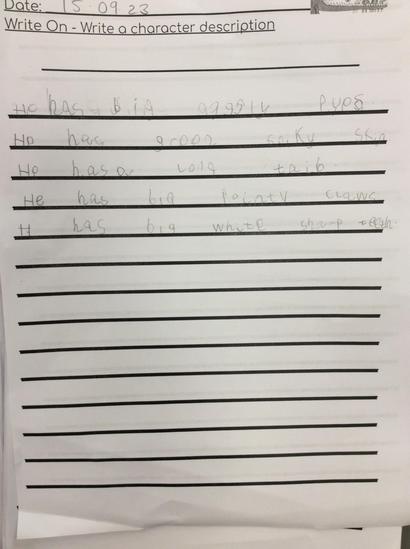 Date: 15.09 23
Write On - Write a character description
He has big eyes
He has green spiky skin
He has a long
He has big pointy claws
H has big white sharp teeth.